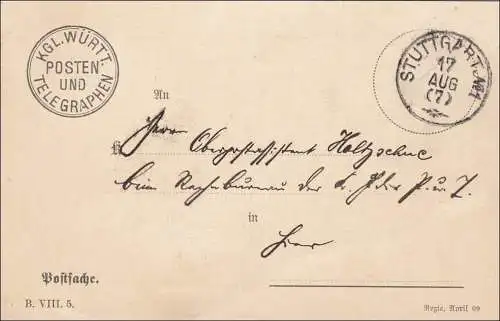 KGL. WÜRTT.
POSTEN
UND
TELEGRAPHEN
STUTTGART No1
17
AUG
(7)
An
Herrn Oberpostassistent Holtzschue
beim der K. G. der P. u. T.
in
Hier
Postsache.
B. VIII. 5.
Regie, April 09